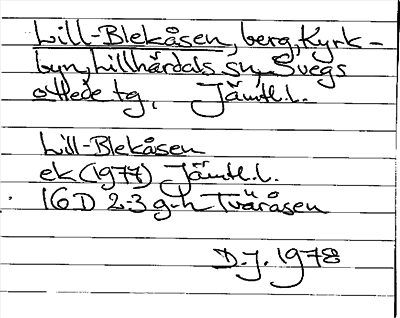 Lill-Blekåsen, berg, Kyrk-
byn, Lillhärdals sn, Svegs
ottede tg, Jämtl.l.
Lill-Blekåsen
ek (1977) Jämtl.l.
16D 2-3 g-h Tväråsen
D.J. 1978